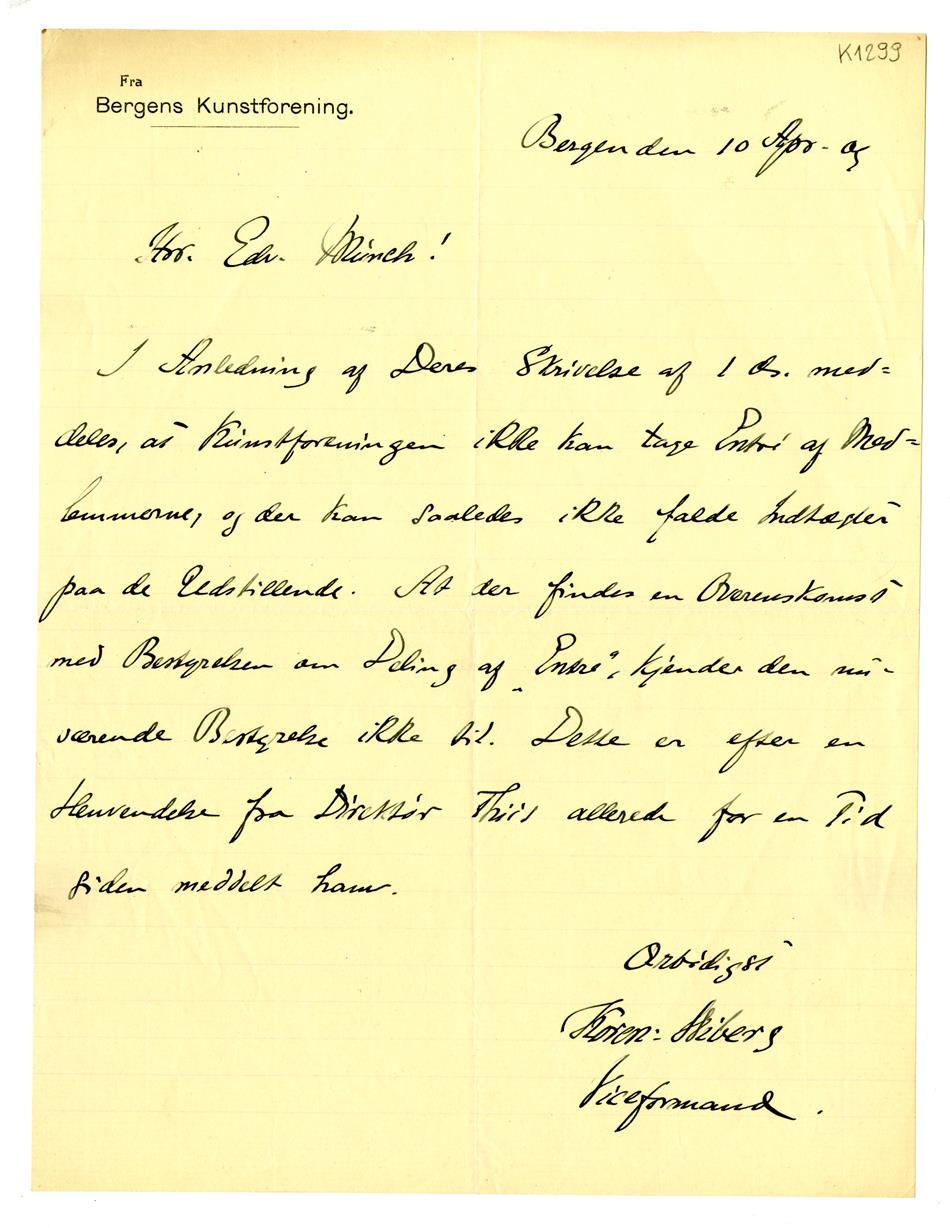 K1299
Fra
Bergens Kunstforening.
Bergen den 10 Apr - 09
Hrr. Edv. Münch!
I Anledning af Deres Skrivelse af 1 ds. med=
deles, at Kunstforeningen ikke kan tage Entré af Med=
lemmerne, og der kan saaledes ikke falde Indtægter
paa de Udstillende. At der findes en Overenskomst
med Bestyrelsen om Deling af „Entré“, kjender den nu-
værende Bestyrelse ikke til. Dette er efter en
Henvendelse fra Direktør Thiis allerede for en Tid
siden meddelt ham.
Ærbødigst
Koren-Wiberg
Viceformand.